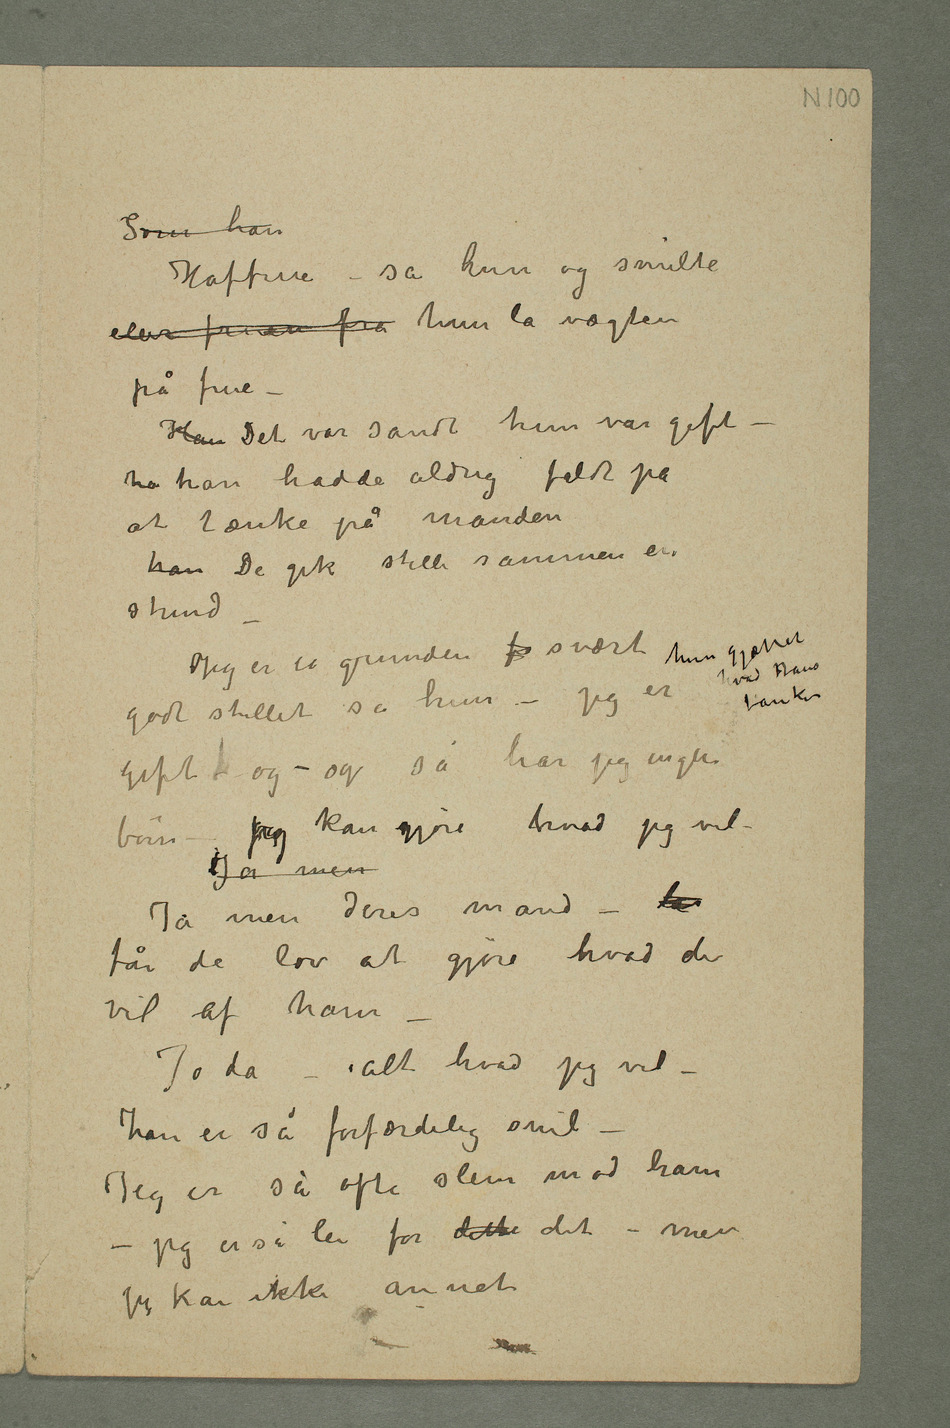 N 100
Som han
Haffrue – sa hun og smilte
hun la vægten
på frue –
Han Det var sandt hun var gift –
ha han hadde aldrig faldt på
at tænke på manden
han De gik stille sammen en
stund –
Jeg er i grunden svært
hun gjættet
hvad Hans
tanker
godt stillet sa hun – jeg er
gift og – og så har jeg ingen
børn – jeg kan gjøre hvad jeg vil –
Ja men
Ja men Deres mand –
får de lov at gjøre hvad de
vil af ham –
Jo da – alt hvad jeg vil –
han er så forfærdelig snil –
Jeg er så ofte slem mod ham
– jeg er så lei for dette det – men
jeg kan ikke annet